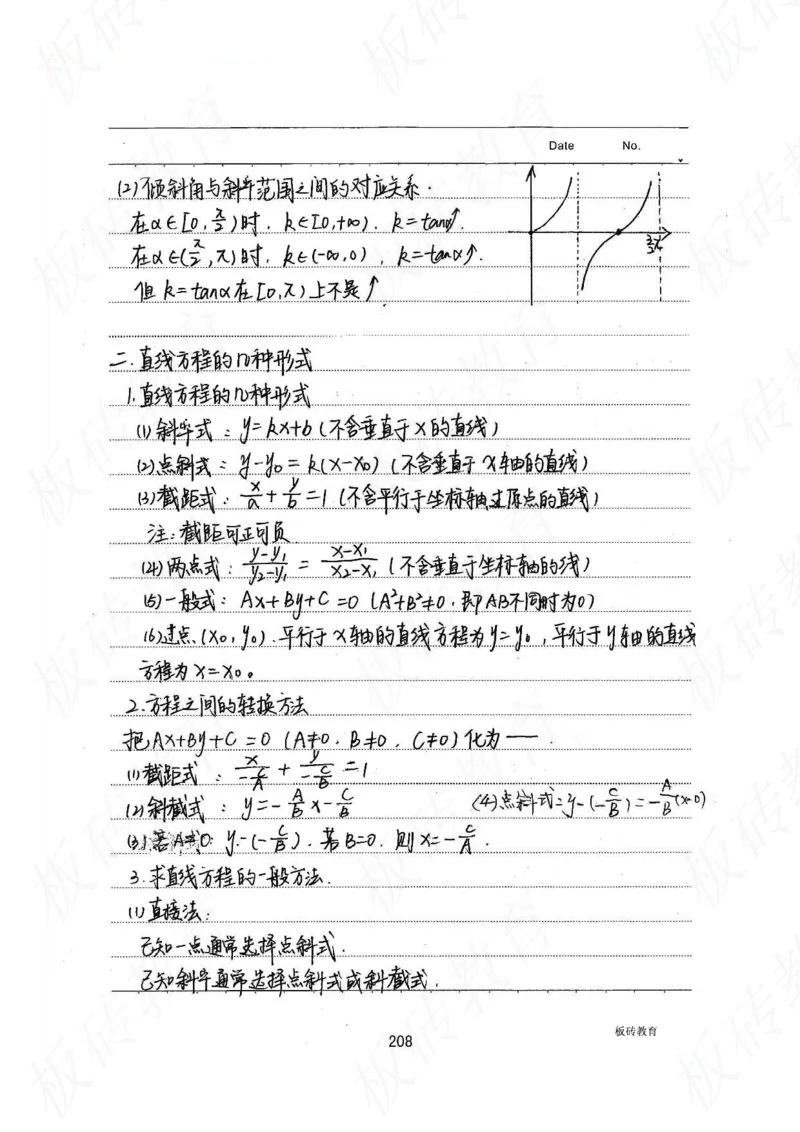 Date No.
(2)倾斜角与斜率范围之间的对应关系.
在α∈[0, π/2)时, k∈[0,+∞), k=tanα↑.
在α∈(π/2, π)时, k∈(-∞,0), k=tanα↑.
但 k=tanα在[0,π)上不是↑
3/2π
二.直线方程的几种形式
1.直线方程的几种形式
(1)斜率式: y=kx+b(不含垂直于x的直线)
(2)点斜式: y-y₀=k(x-x₀)(不含垂直于x轴的直线)
(3)截距式: x/a + y/b =1 (不含平行于坐标轴,过原点的直线)
注:截距可正可负
(4)两点式: (y-y₁)/(y₂-y₁) = (x-x₁)/(x₂-x₁) (不含垂直于坐标轴的线)
(5)一般式: Ax+By+C=0 (A²+B²≠0,即AB不同时为0)
(6)过点(x₀,y₀).平行于x轴的直线方程为y=y₀,平行于y轴的直线
方程为x=x₀。
2.方程之间的转换方法
把Ax+By+C=0 (A≠0, B≠0, C≠0)化为——.
(1)截距式: x/(-C/A) + y/(-C/B) =1
(2)斜截式: y=-A/B x-C/B
(4)点斜式:y-(-C/B)=-A/B(x-0)
(3)若A=0: y-(-C/B). 若B=0. 则x=-C/A.
3.求直线方程的一般方法.
(1)直接法:
已知一点通常选择点斜式.
已知斜率通常选择点斜式或斜截式.
板砖教育
208